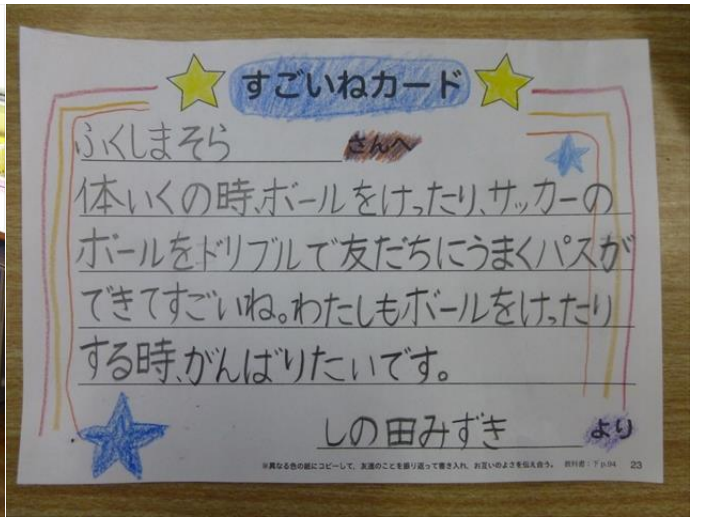 すごいねカード
ふくしまそら さんへ
体いくの時、ボールをけったり、サッカーの
ボールをドリブルで友だちにうまくパスが
できてすごいね。わたしもボールをけったり
する時、がんばりたいです。
しの田みずき より
※異なる色の紙にコピーして、友達のことを振り返って書き入れ、お互いのよさを伝え合う。 教科書:下p.94 23